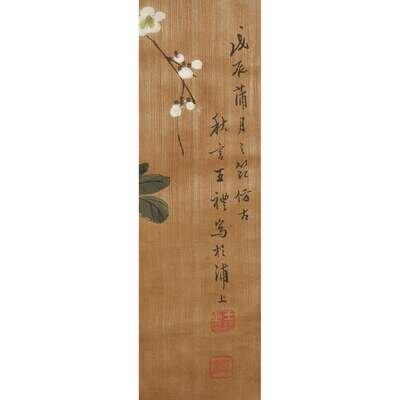 戊辰蒲月之節仿古
秋言王禮寫於浦上